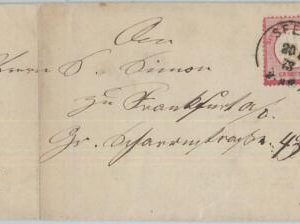 An
Herrn S. Simon
zu Frankfurt a/o.
Gr. Scharrnstraße 43
SPE
20
73